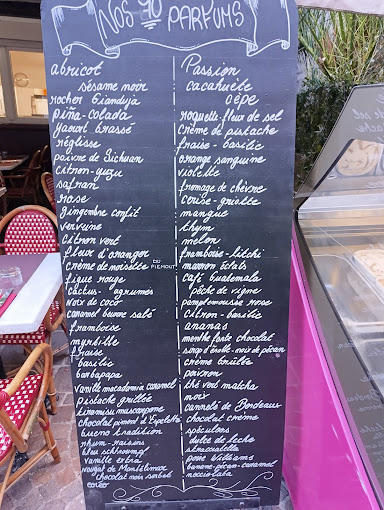 Nos 90 PARFUMS
abricot
sésame noir
rocher Gianduja
piña-colada
yaourt brassé
réglisse
poivre de Sichuan
citron-yuzu
safran
rose
gingembre confit
verveine
citron vert
fleur d'oranger
crème de noisette DU PIEMONT
figue rouge
cactus - agrumes
noix de coco
caramel beurre salé
framboise
myrtille
fraise
basilic
barbapapa
vanille macadamia caramel
pistache grillée
tiramisu mascarpone
chocolat piment d'Espelette
bueno tradition
rhum-raisins
bleu schtroumpf
vanille extra
nougat de Montélimar
chocolat noir sorbet
coco
Passion
cacahuète
cèpe
roquette-fleur de sel
crème de pistache
fraise-basilic
orange sanguine
violette
fromage de chèvre
cerise-griotte
mangue
thym
melon
framboise-litchi
marron éclats
café Guatemala
pêche de vigne
pamplemousse rose
citron-basilic
ananas
menthe forte chocolat
sirop d'érable-noix de pécan
crème brûlée
poivron
thé vert matcha
noir
cannelé de Bordeaux
chocolat crème
spéculoos
dulce de leche
stracciatella
poire Williams
banane-pécan-caramel
nocciolata